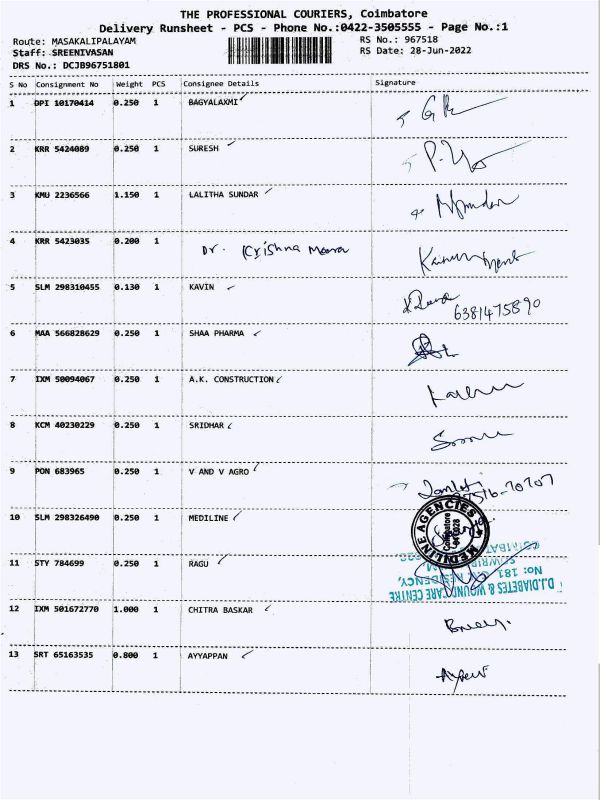 THE PROFESSIONAL COURIERS, Coimbatore
Delivery Runsheet - PCS - Phone No.:0422-3505555 - Page No.:1
Route: MASAKALIPALAYAM RS No.: 967518
Staff: SREENIVASAN RS Date: 28-Jun-2022
DRS No.: DCJB96751801
S No Consignment No Weight PCS Consignee Details Signature
1 OPI 10170414 0.250 1 BAGYALAXMI
2 KRR 5424089 0.250 1 SURESH
3 KMU 2236566 1.150 1 LALITHA SUNDAR
4 KRR 5423035 0.200 1 Dr. Krishna
5 SLM 298310455 0.130 1 KAVIN
6381475890
6 MAA 566828629 0.250 1 SHAA PHARMA
7 IXM 50094067 0.250 1 A.K. CONSTRUCTION
8 KCM 40230229 0.250 1 SRIDHAR
9 PON 683965 0.250 1 V AND V AGRO
10 SLM 298326490 0.250 1 MEDILINE
MEDILINE AGENCIES
Coimbatore
11 STY 784699 0.250 1 RAGU
D.J.DIABETES & WOUND CARE CENTRE
No: 181
12 IXM 501672770 1.000 1 CHITRA BASKAR
13 SRT 65163535 0.800 1 AYYAPPAN